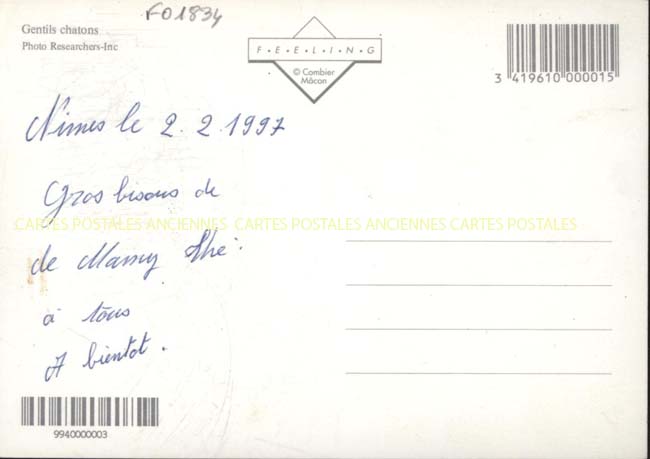 F01834
Gentils chatons
Photo Researchers-Inc
F·E·E·L·I·N·G
© Combier
Mâcon
3 419610 000015
Nîmes le 2.2.1997
Gros bisous de
CARTES POSTALES ANCIENNES CARTES POSTALES ANCIENNES CARTES POSTALES
de Mamy
à tous
A bientot.
9940000003